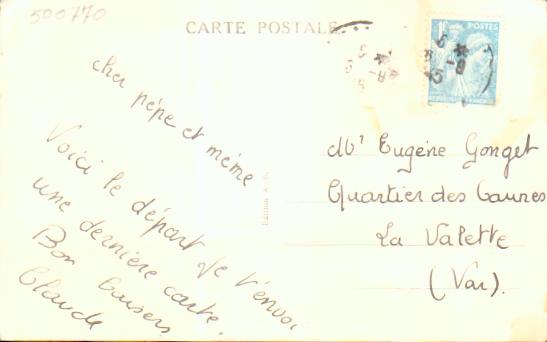 500770
CARTE POSTALE
1F POSTES
cher pépe et méme
Voici le départ Je t'envoi
une dernière carte.
Bon baisers
Claude
Edition A. B.
Mr Eugène Gonget
Quartier des Gaunes
La Valette
(Var).